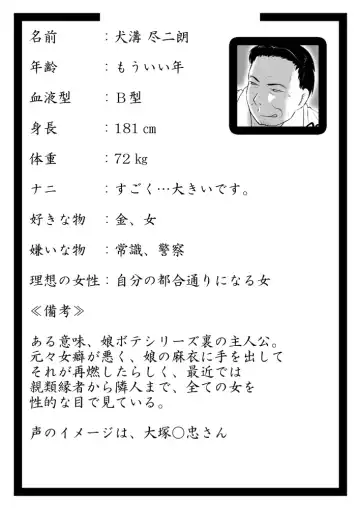 名前　　　：犬溝 尽二朗
年齢　　　：もういい年
血液型　　：Ｂ型
身長　　　：181㎝
体重　　　：72㎏
ナニ　　　：すごく…大きいです。
好きな物　：金、女
嫌いな物　：常識、警察
理想の女性：自分の都合通りになる女
≪備考≫
ある意味、娘ボテシリーズ裏の主人公。
元々女癖が悪く、娘の麻衣に手を出して
それが再燃したらしく、最近では
親類縁者から隣人まで、全ての女を
性的な目で見ている。
声のイメージは、大塚○忠さん